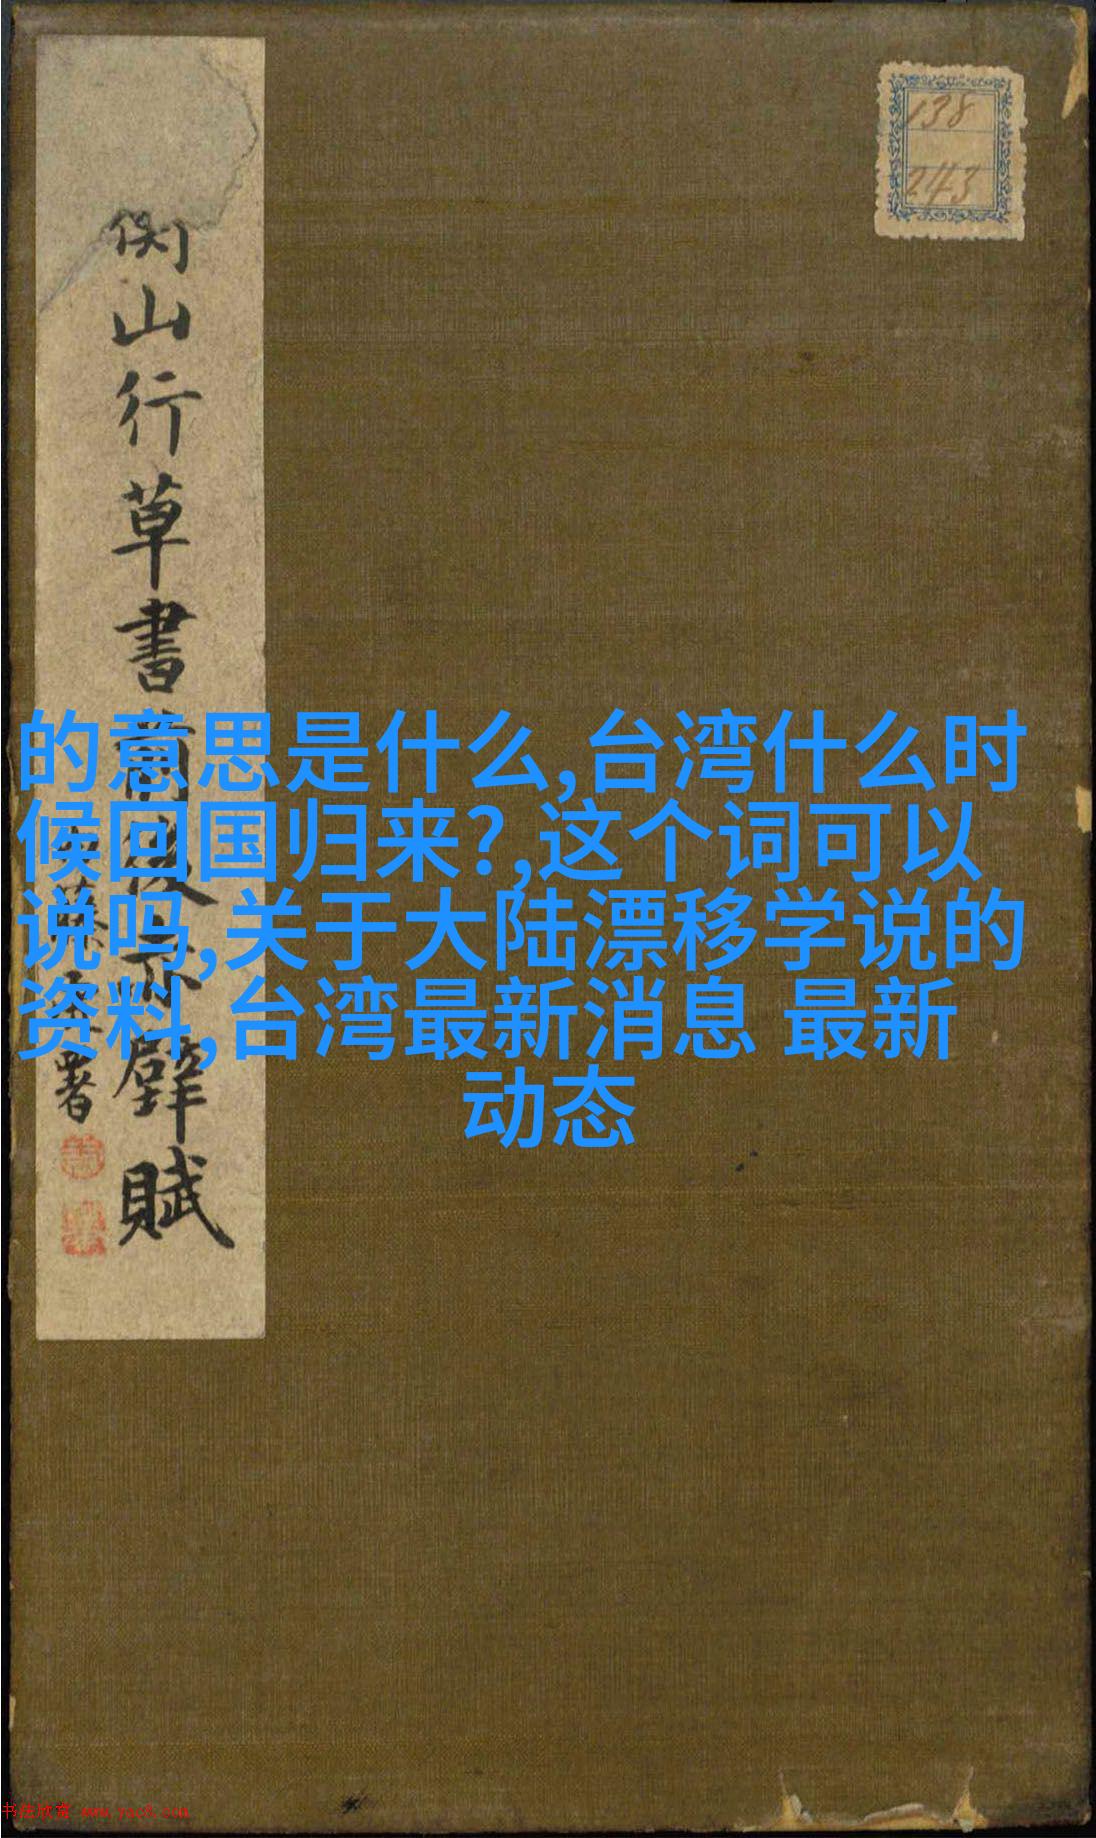 138
243
衡山行草書前後赤壁賦
署
的意思是什么,台湾什么时
候回国归来?,这个词可以
说吗,关于大陆漂移学说的
资料,台湾最新消息 最新
动态
书法欣赏 www.yac8.com